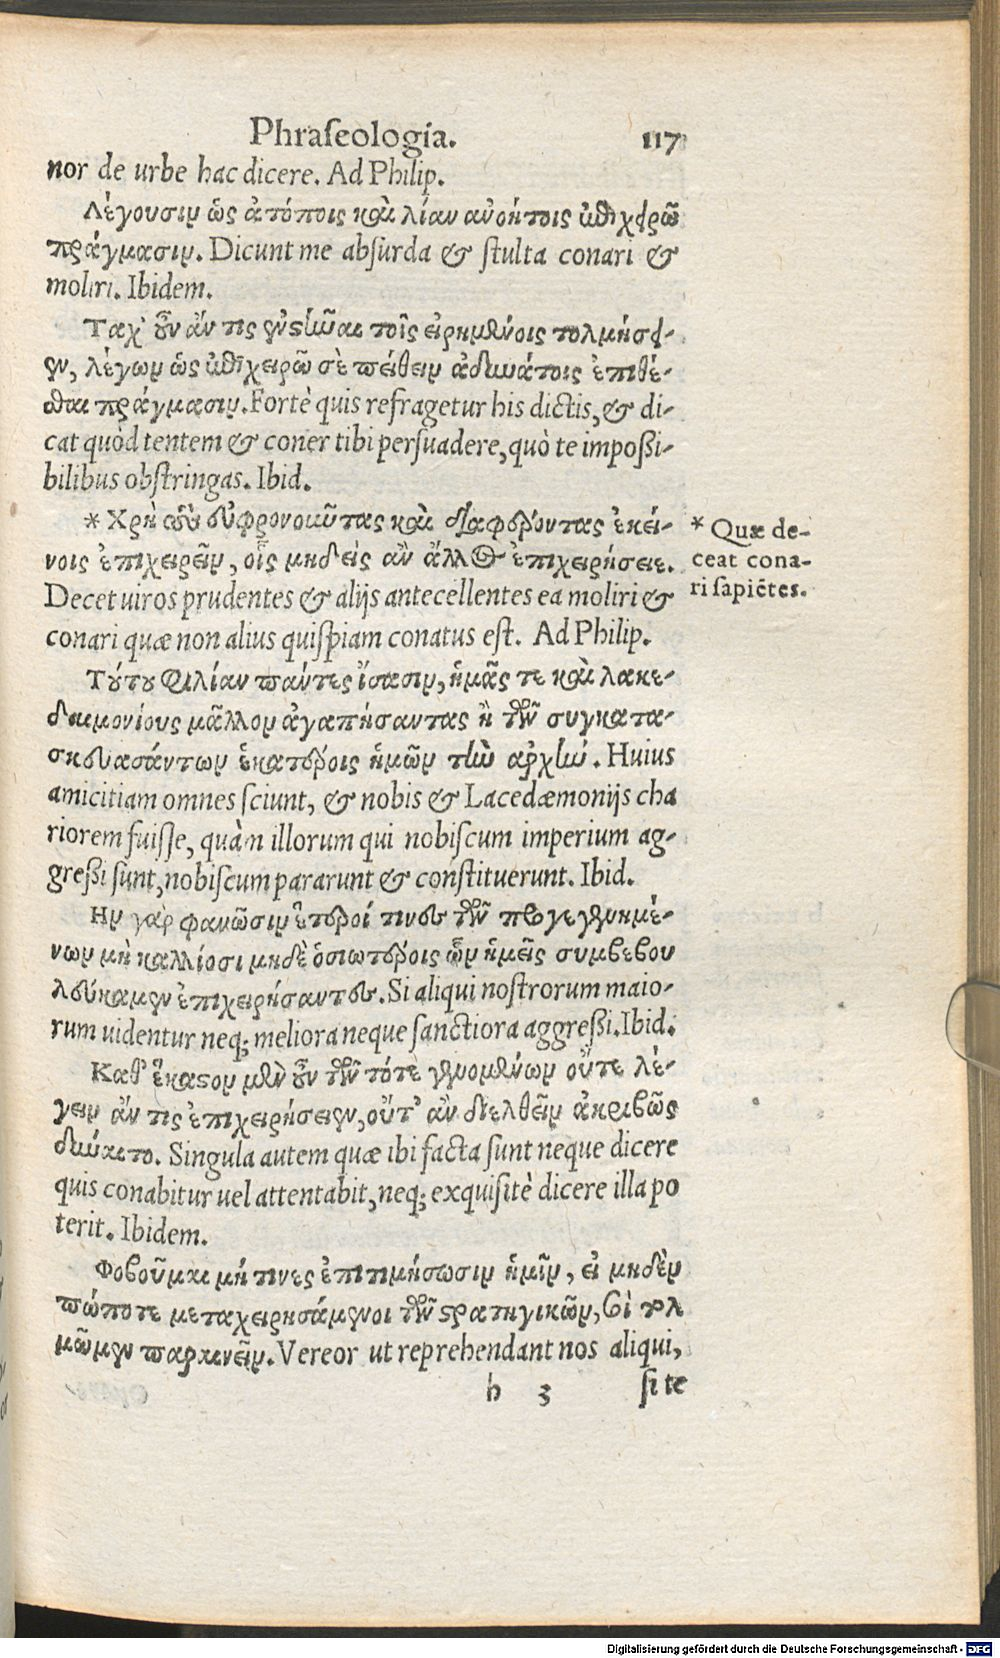 Phraseologia. 117
nor de urbe hac dicere. Ad Philip.
Λέγουσιν ὡς ἀτόποις καὶ λίαν ἀνοήτοις ἐπιχειρῶ
πράγμασιν. Dicunt me absurda & stulta conari &
moliri. Ibidem.
Ταχ' οὖν ἄν τις ἐνστῆναι τοῖς εἰρημένοις τολμήσει-
εν, λέγων ὡς ἐπιχειρῶ σὲ πείθειν ἀδυνάτοις ἐπιθέ-
σθαι πράγμασιν. Fortè quis refragetur his dictis, & di-
cat quòd tentem & coner tibi persuadere, quò te impoßi-
bilibus obstringas. Ibid.
* Χρὴ τοὺς εὐφρονοῦντας καὶ διαφέροντας ἐκεί-
νοις ἐπιχειρεῖν, οἷς μηδεὶς ἂν ἄλλος ἐπιχειρήσειε.
* Quæ de-
ceat cona-
ri sapiẽtes.
Decet uiros prudentes & alijs antecellentes ea moliri &
conari quæ non alius quispiam conatus est. Ad Philip.
Τούτου φιλίαν πάντες ἴσασιν, ἡμᾶς τε καὶ λακε-
δαιμονίους μᾶλλον ἀγαπήσαντας ἢ τῶν συγκατα-
σκευασάντων ἑκατέροις ἡμῶν τὴν ἀρχήν. Huius
amicitiam omnes sciunt, & nobis & Lacedæmonijs cha
riorem fuisse, quàm illorum qui nobiscum imperium ag-
greßi sunt, nobiscum pararunt & constituerunt. Ibid.
Ην γὰρ φανῶσιν ἕτεροί τινες τῶν προγεγενημέ-
νων μὴ καλλίοσι μηδὲ ὁσιωτέροις ὧν ἡμεῖς συμβεβου
λεύκαμεν ἐπιχειρήσαντες. Si aliqui nostrorum maio-
rum uidentur neq; meliora neque sanctiora aggreßi. Ibid.
Καθ' ἕκαστον μὲν οὖν τῶν τότε γενομένων οὔτε λέ-
γειν ἄν τις ἐπιχειρήσειεν, οὔτ' ἂν διελθεῖν ἀκριβῶς
δύναιτο. Singula autem quæ ibi facta sunt neque dicere
quis conabitur uel attentabit, neq; exquisitè dicere illa po
terit. Ibidem.
Φοβοῦμαι μή τινες ἐπιτιμήσωσιν ἡμῖν, εἰ μηδὲν
πώποτε μεταχειρησάμενοι τῶν στρατηγικῶν, σοὶ τολ
μῶμεν παραινεῖν. Vereor ut reprehendant nos aliqui,
h 3 si te
Digitalisierung gefördert durch die Deutsche Forschungsgemeinschaft - DFG